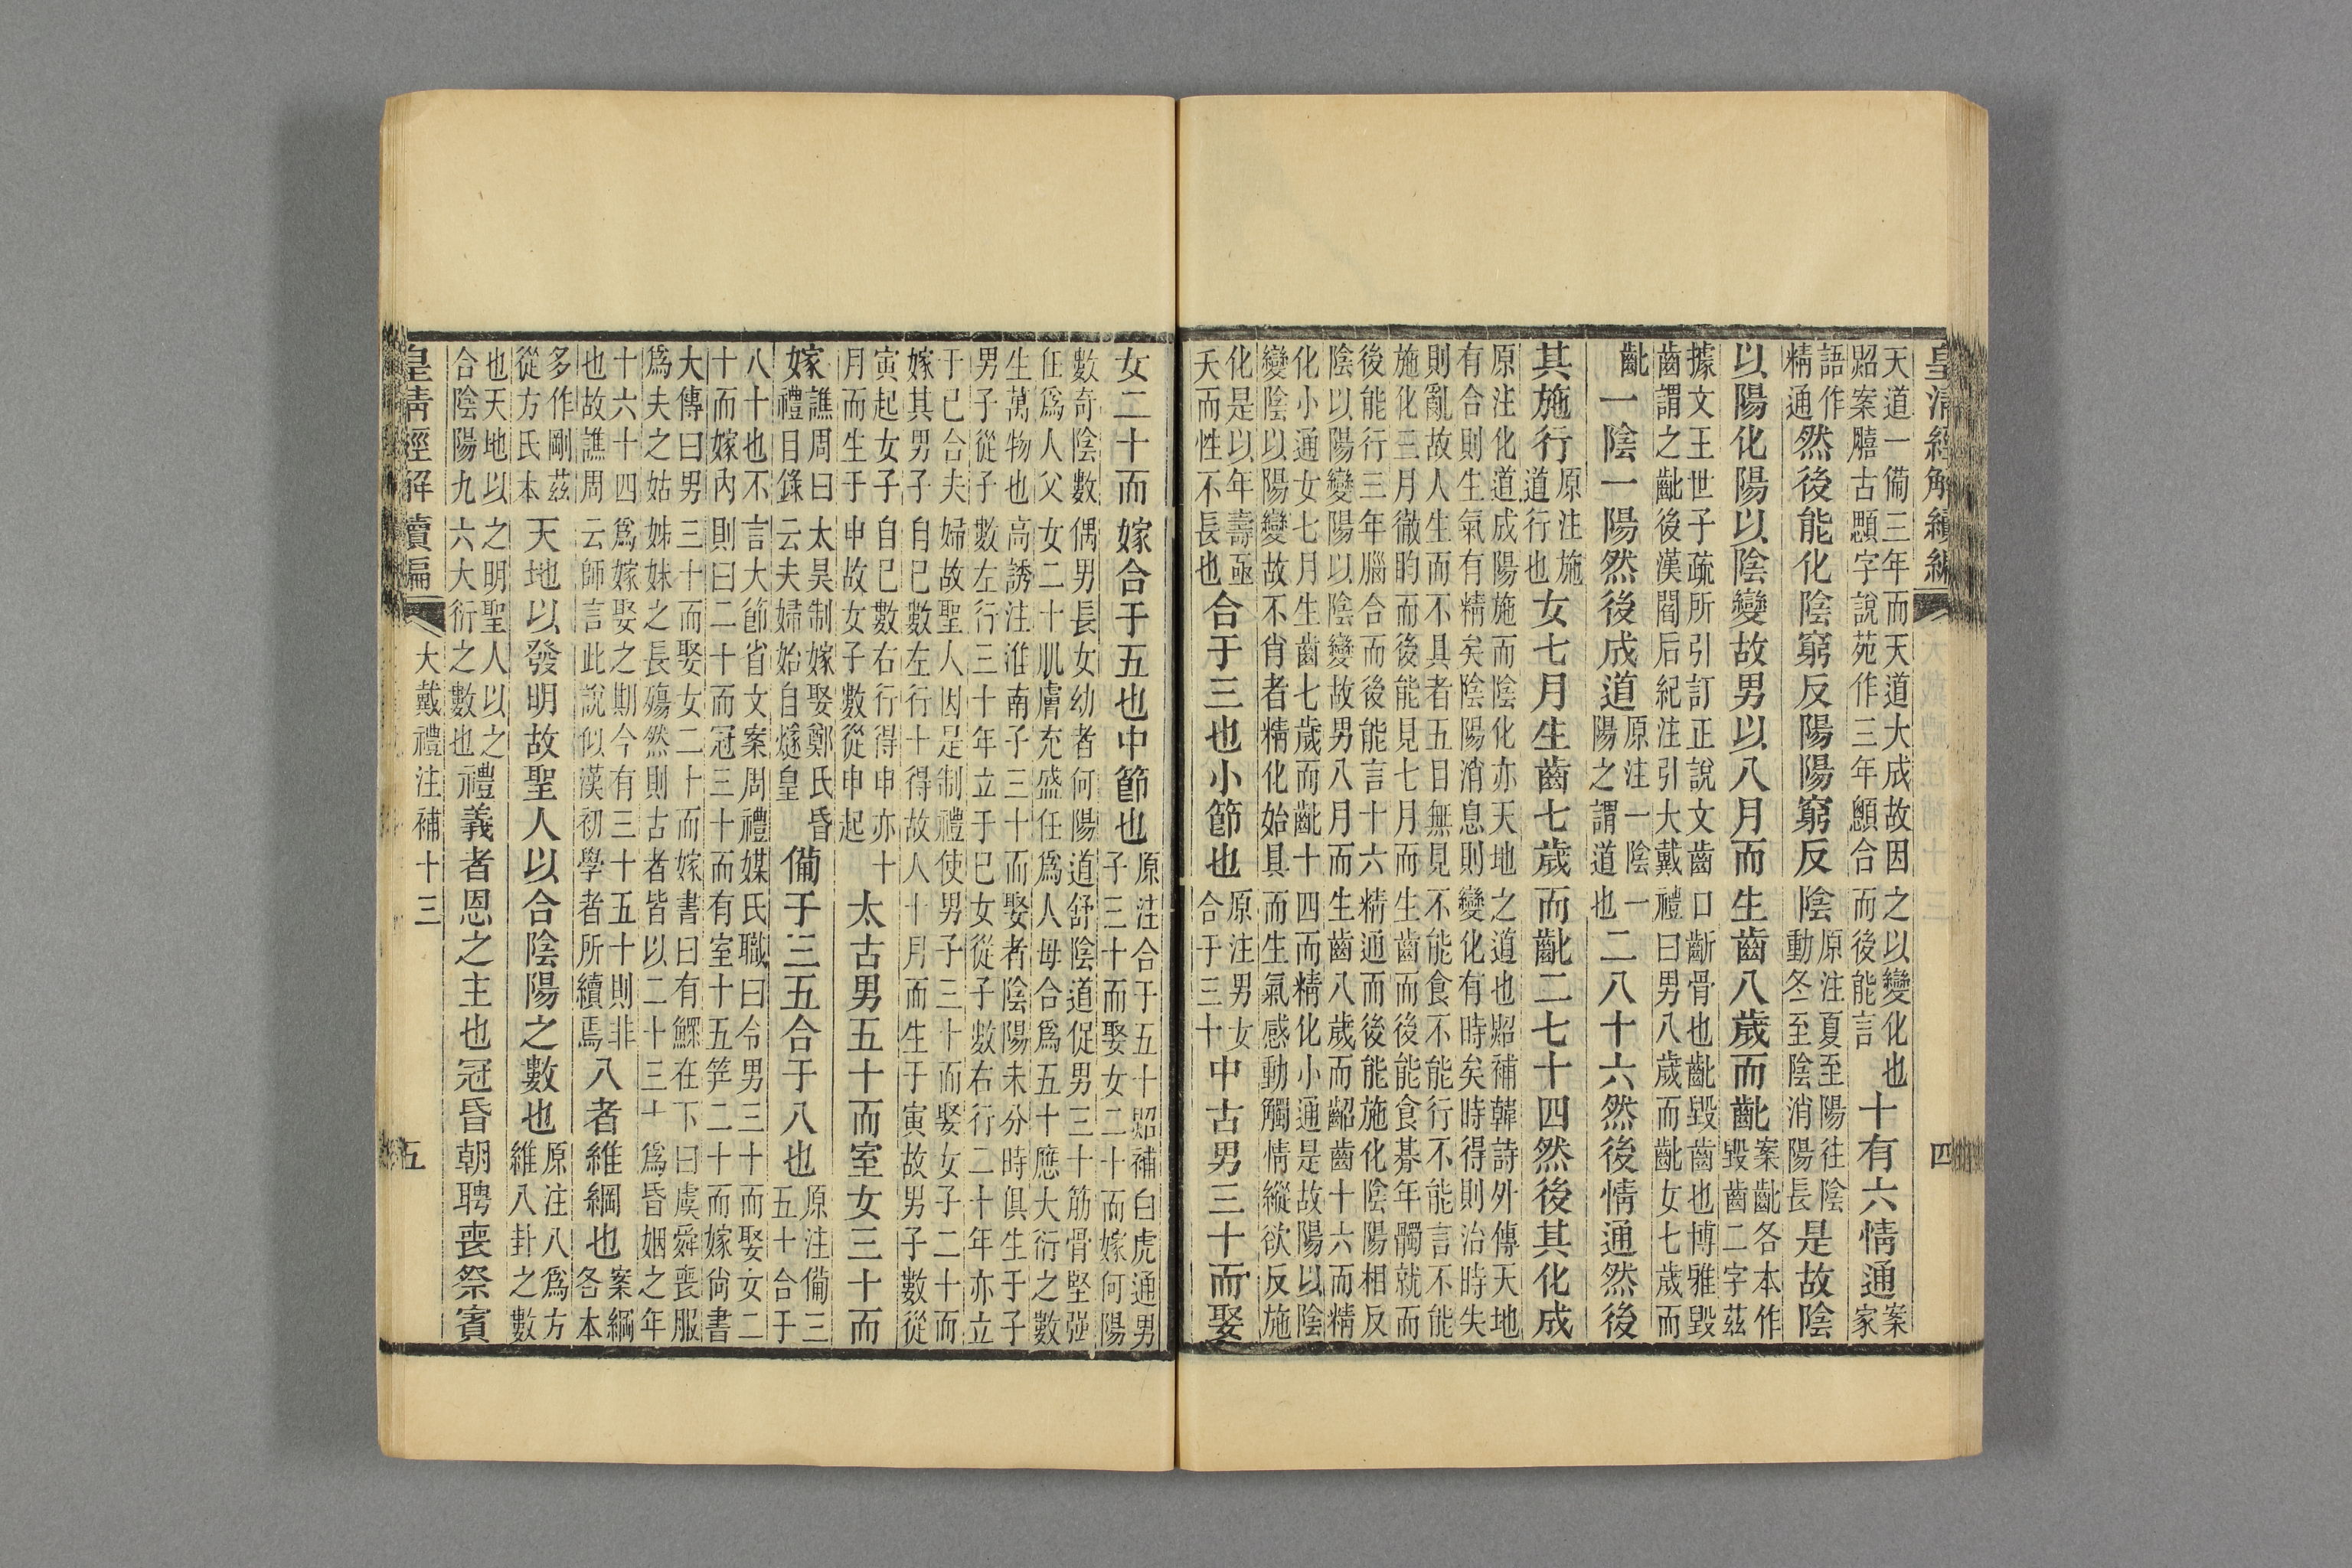 皇清經解續編 四
天道一僃三年而天道大成故因之以變化也
炤案䐉古顖字說苑作三年顖合而後能言
十有六情通
案
家
語作
精通
然後能化陰窮反陽陽窮反陰
原注夏至陽往陰
動冬至陰消陽長
是故陰
以陽化陽以陰變故男以八月而生齒八歲而齔
案齔各本作
毀齒二字茲
據文王世子疏所引訂正說文齒口齗骨也齔毀齒也博雅毀
齒謂之齔後漢閻后紀注引大戴禮曰男八歲而齔女七歲而
齔
一陰一陽然後成道
原注一陰一
陽之謂道也
二八十六然後情通然後
其施行
原注施
道行也
女七月生齒七歲而齔二七十四然後其化成
原注化道成陽施而陰化亦天地之道也炤補韓詩外傳天地
有合則生氣有精矣陰陽消息則變化有時矣時得則治時失
則亂故人生而不具者五日無見不能食不能行不能言不能
施化三月徹盷而後能見七月而生齒而後能食朞年髑就而
後能行三年腦合而後能言十六精通而後能施化陰陽相反
陰以陽變陽以陰變故男八月而生齒八歲而齠齒十六而精
化小通女七月生齒七歲而齔十四而精化小通是故陽以陰
變陰以陽變故不肖者精化始具而生氣感動觸情縱欲反施
化是以年壽亟
夭而性不長也
合于三也小節也
原注男女
合于三十
中古男三十而娶
女二十而嫁合于五也中節也
原注合于五十炤補白虎通男
子三十而娶女二十而嫁何陽
數奇陰數偶男長女幼者何陽道舒陰道促男三十筋骨堅強
任爲人父女二十肌膚充盛任爲人母合爲五十應大衍之數
生萬物也高誘注淮南子三十而娶者陰陽未分時俱生于子
男子從子數左行三十年立于巳女從子數右行二十年亦立
于巳合夫婦故聖人因是制禮使男子三十而娶女子二十而
嫁其男子自巳數左行十得故人十月而生于寅故男子數從
寅起女子自巳數右行得申亦十
月而生于申故女子數從申起
太古男五十而室女三十而
嫁
譙周曰太昊制嫁娶鄭氏昏
禮目錄云夫婦始自燧皇
僃于三五合于八也
原注僃三
五十合于
八十也不言大節省文案周禮媒氏職曰令男三十而娶女二
十而嫁內則曰二十而冠三十而有室十五笄二十而嫁尙書
大傳曰男三十而娶女二十而嫁書曰有鰥在下曰虞舜喪服
爲夫之姑姊妹之長殤然則古者皆以二十三十爲昏姻之年
十六十四爲嫁娶之期今有三十五十則非
也故譙周云師言此說似漢初學者所續焉
八者維綱也
案綱
各本
多作剛茲
從方氏本
天地以發明故聖人以合陰陽之數也
原注八爲方
維八卦之數
也天地以之明聖人以之
合陰陽九六大衍之數也
禮義者恩之主也冠昏朝聘喪祭賓
皇清經解續編 大戴禮注補十三 五